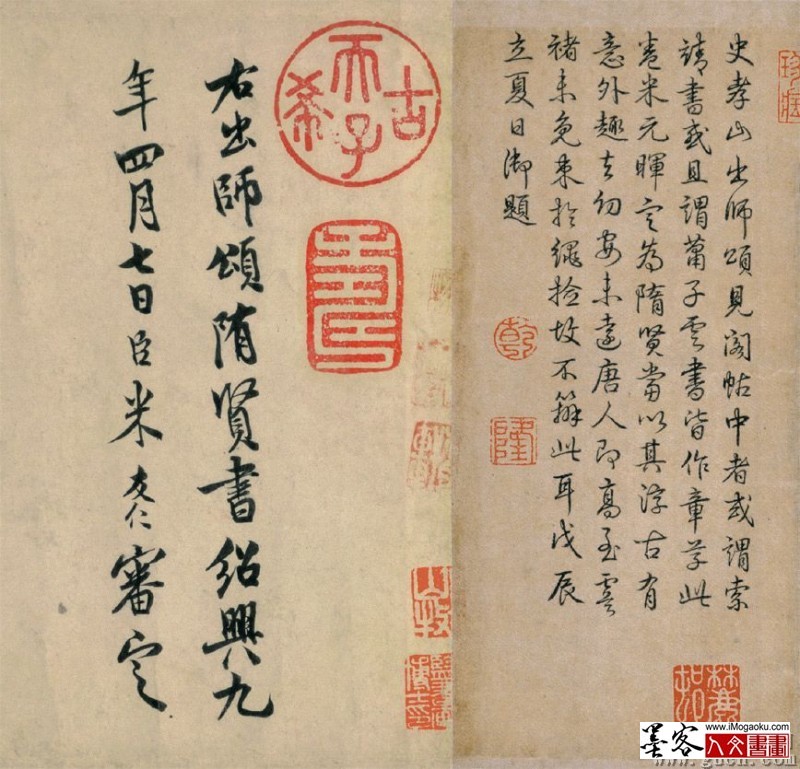 史孝山出師頌見閣帖中者或謂索
靖書或且謂蕭子雲書皆作章草此
卷米元暉定為隋賢當以其淳古有
意外趣去幼安未遠唐人即高至虞
褚未免束於繩撿故不辦此耳戊辰
立夏日御題
乾
隆
古希天子
右出師頌隋賢書紹興九
年四月七日臣米友仁審定
www.iMogaoku.com
墨客人文書畫